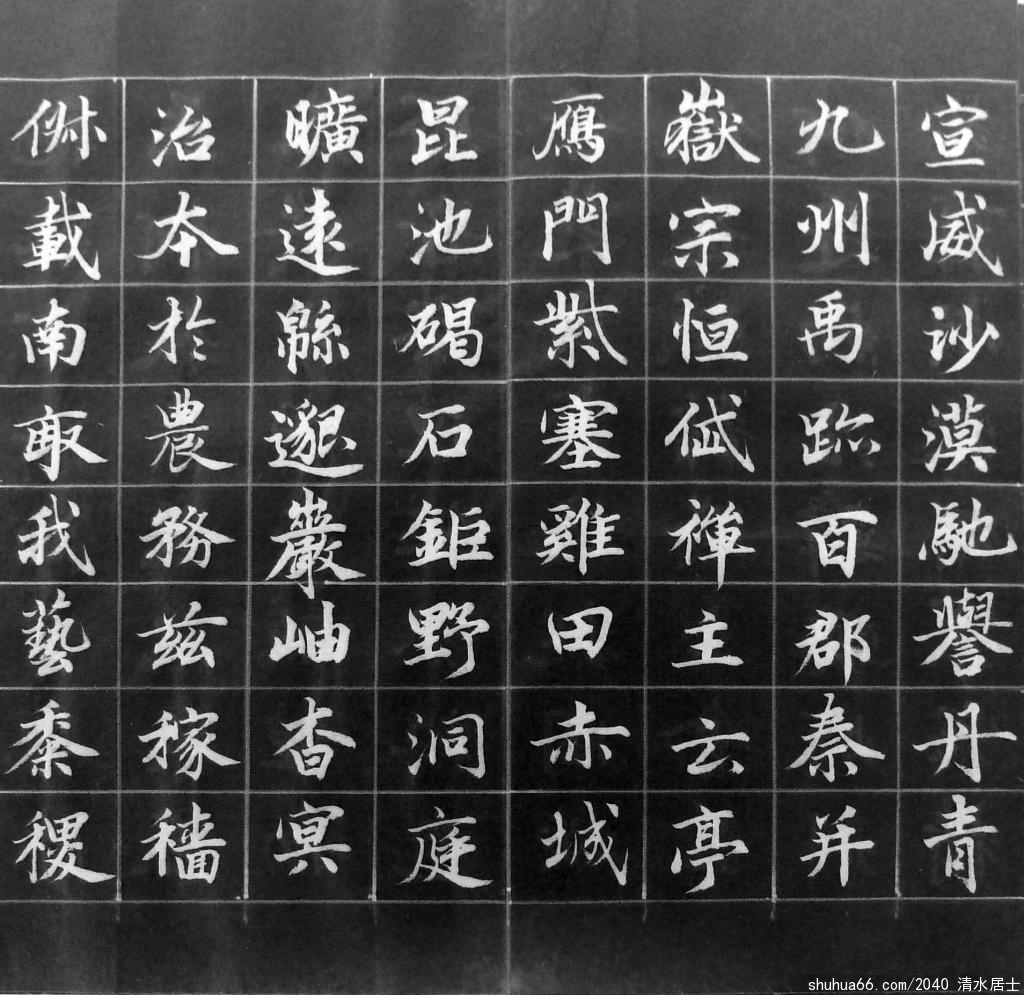 宣威沙漠馳譽丹青
九州禹跡百郡秦并
嶽宗恒岱禪主云亭
鴈門紫塞雞田赤城
昆池碣石鉅野洞庭
曠遠緜邈巖岫杳冥
治本於農務茲稼穡
俶載南畝我藝黍稷
shuhua66.com/2040 清水居士